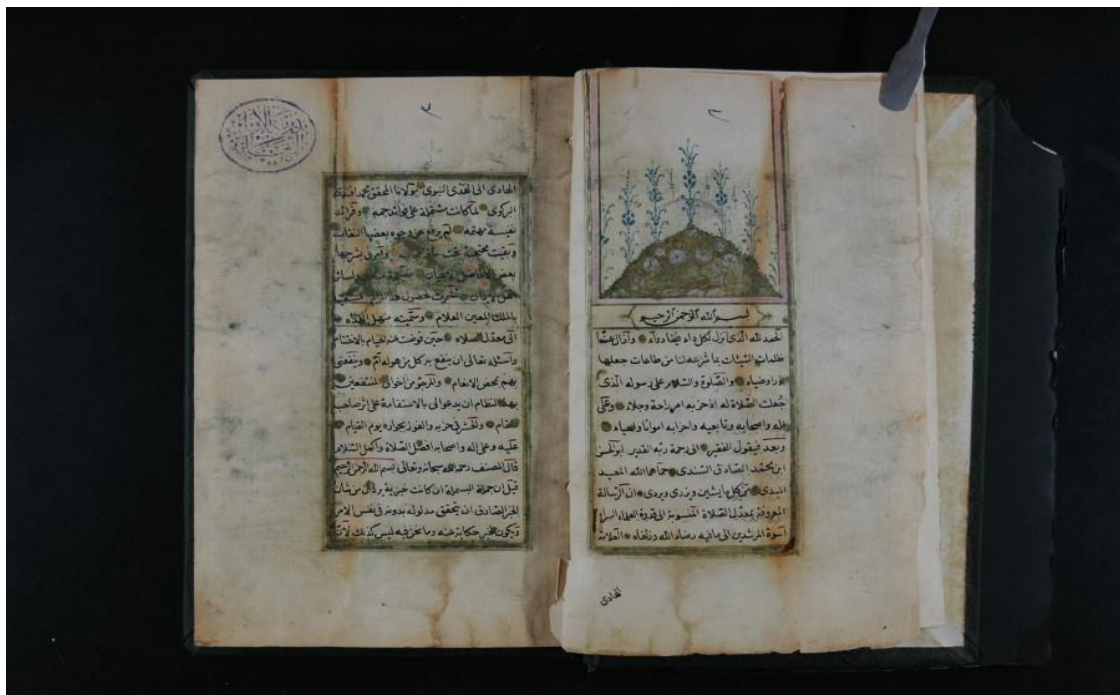 ٢
بسم الله الرحمن الرحيم
الحمد لله الذى انزل لكل داء شفاء ودواء وازال عنا
ظلمات السيئات بما شرعه لنا من طاعات جعلها
نورا وضياء والصلوة والسلام على رسوله الذى
جعلت الصلاة له اذ حزبه امر راحة وجلاء وعلى
اله واصحابه وتابعيه واحزابه امواتا واحياء
وبعد فيقول الفقير الى رحمة ربه القدير ابو الحسن
ابن محمد الصادق السندى حماهما الله المعيد
المبدى من كل ما يشين ويردى ان الرسالة
المعروفة بمعدل الصلاة المنسوبة الى قدوة العلماء
اسوة المرشدين الى ما فيه رضاء الله العلامة
الهادى
٣
الهادى الى النبوى مولانا المحقق محمد افندى
البركوى لما كانت مشتملة على فوائد جمه
نفيسة مهمه لم يرفع عن وجوه بعضها النقاب
وبقيت
بعض
بالملك المعين العلام وسميته منهل الهداه
الى معدل الصلاه حين قوضت عنه الخيام بالاختتام
واسئله تعالى ان ينفع به كل من هو له أم وينفعنى
بهم بمحض الانعام والمرجو من اخوانى المنتفعين
بهذا النظام ان يدعوا لى بالاستقامة على اثر صاحب
المقام والحشر فى حزبه والفوز بجواره يوم القيام
عليه وعلى اله واصحابه افضل الصلاة واكمل السلام
قال المصنف رحمه الله سبحانه وتعالى بسم الله الرحمن الرحيم
قيل ان جملة البسملة ان كانت خبرية يرد ان من شان
الخبر الصادق ان يتحقق مدلوله بدونه فى نفس الامر
ويكون الخبر حكاية عنه وما نحن فيه ليس كذلك